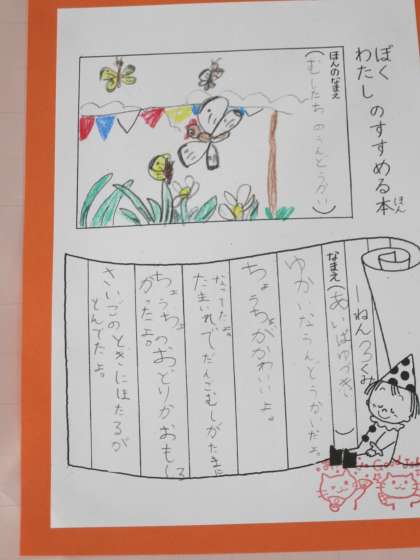 ぼく
わたしのすすめる本
ほん
ほんのなまえ
(むしたちのうんどうかい)
一ねん
なまえ(あいばゆづき)
ゆかいなうんどうかいだよ。
ちょうちょがかわいいよ。
なってたよ。
たまいれでだんごむしがたまに
ちょうちょのおどりがおもしろ
がったよ。
さいごのときにほたるが
とんでたよ。